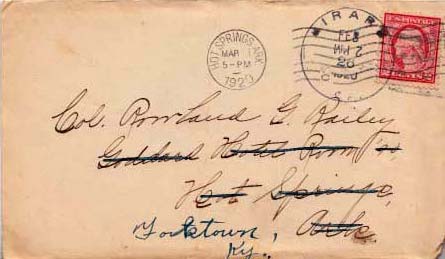 HOT SPRINGS, ARK.
MAR 1
5-PM
1920
IRAR
FEB
26
1920
CENTS 2
Col. Rowland G. Bailey
Goddard Hotel Room
Hot Springs,
Yorktown, Ark.
Ky.